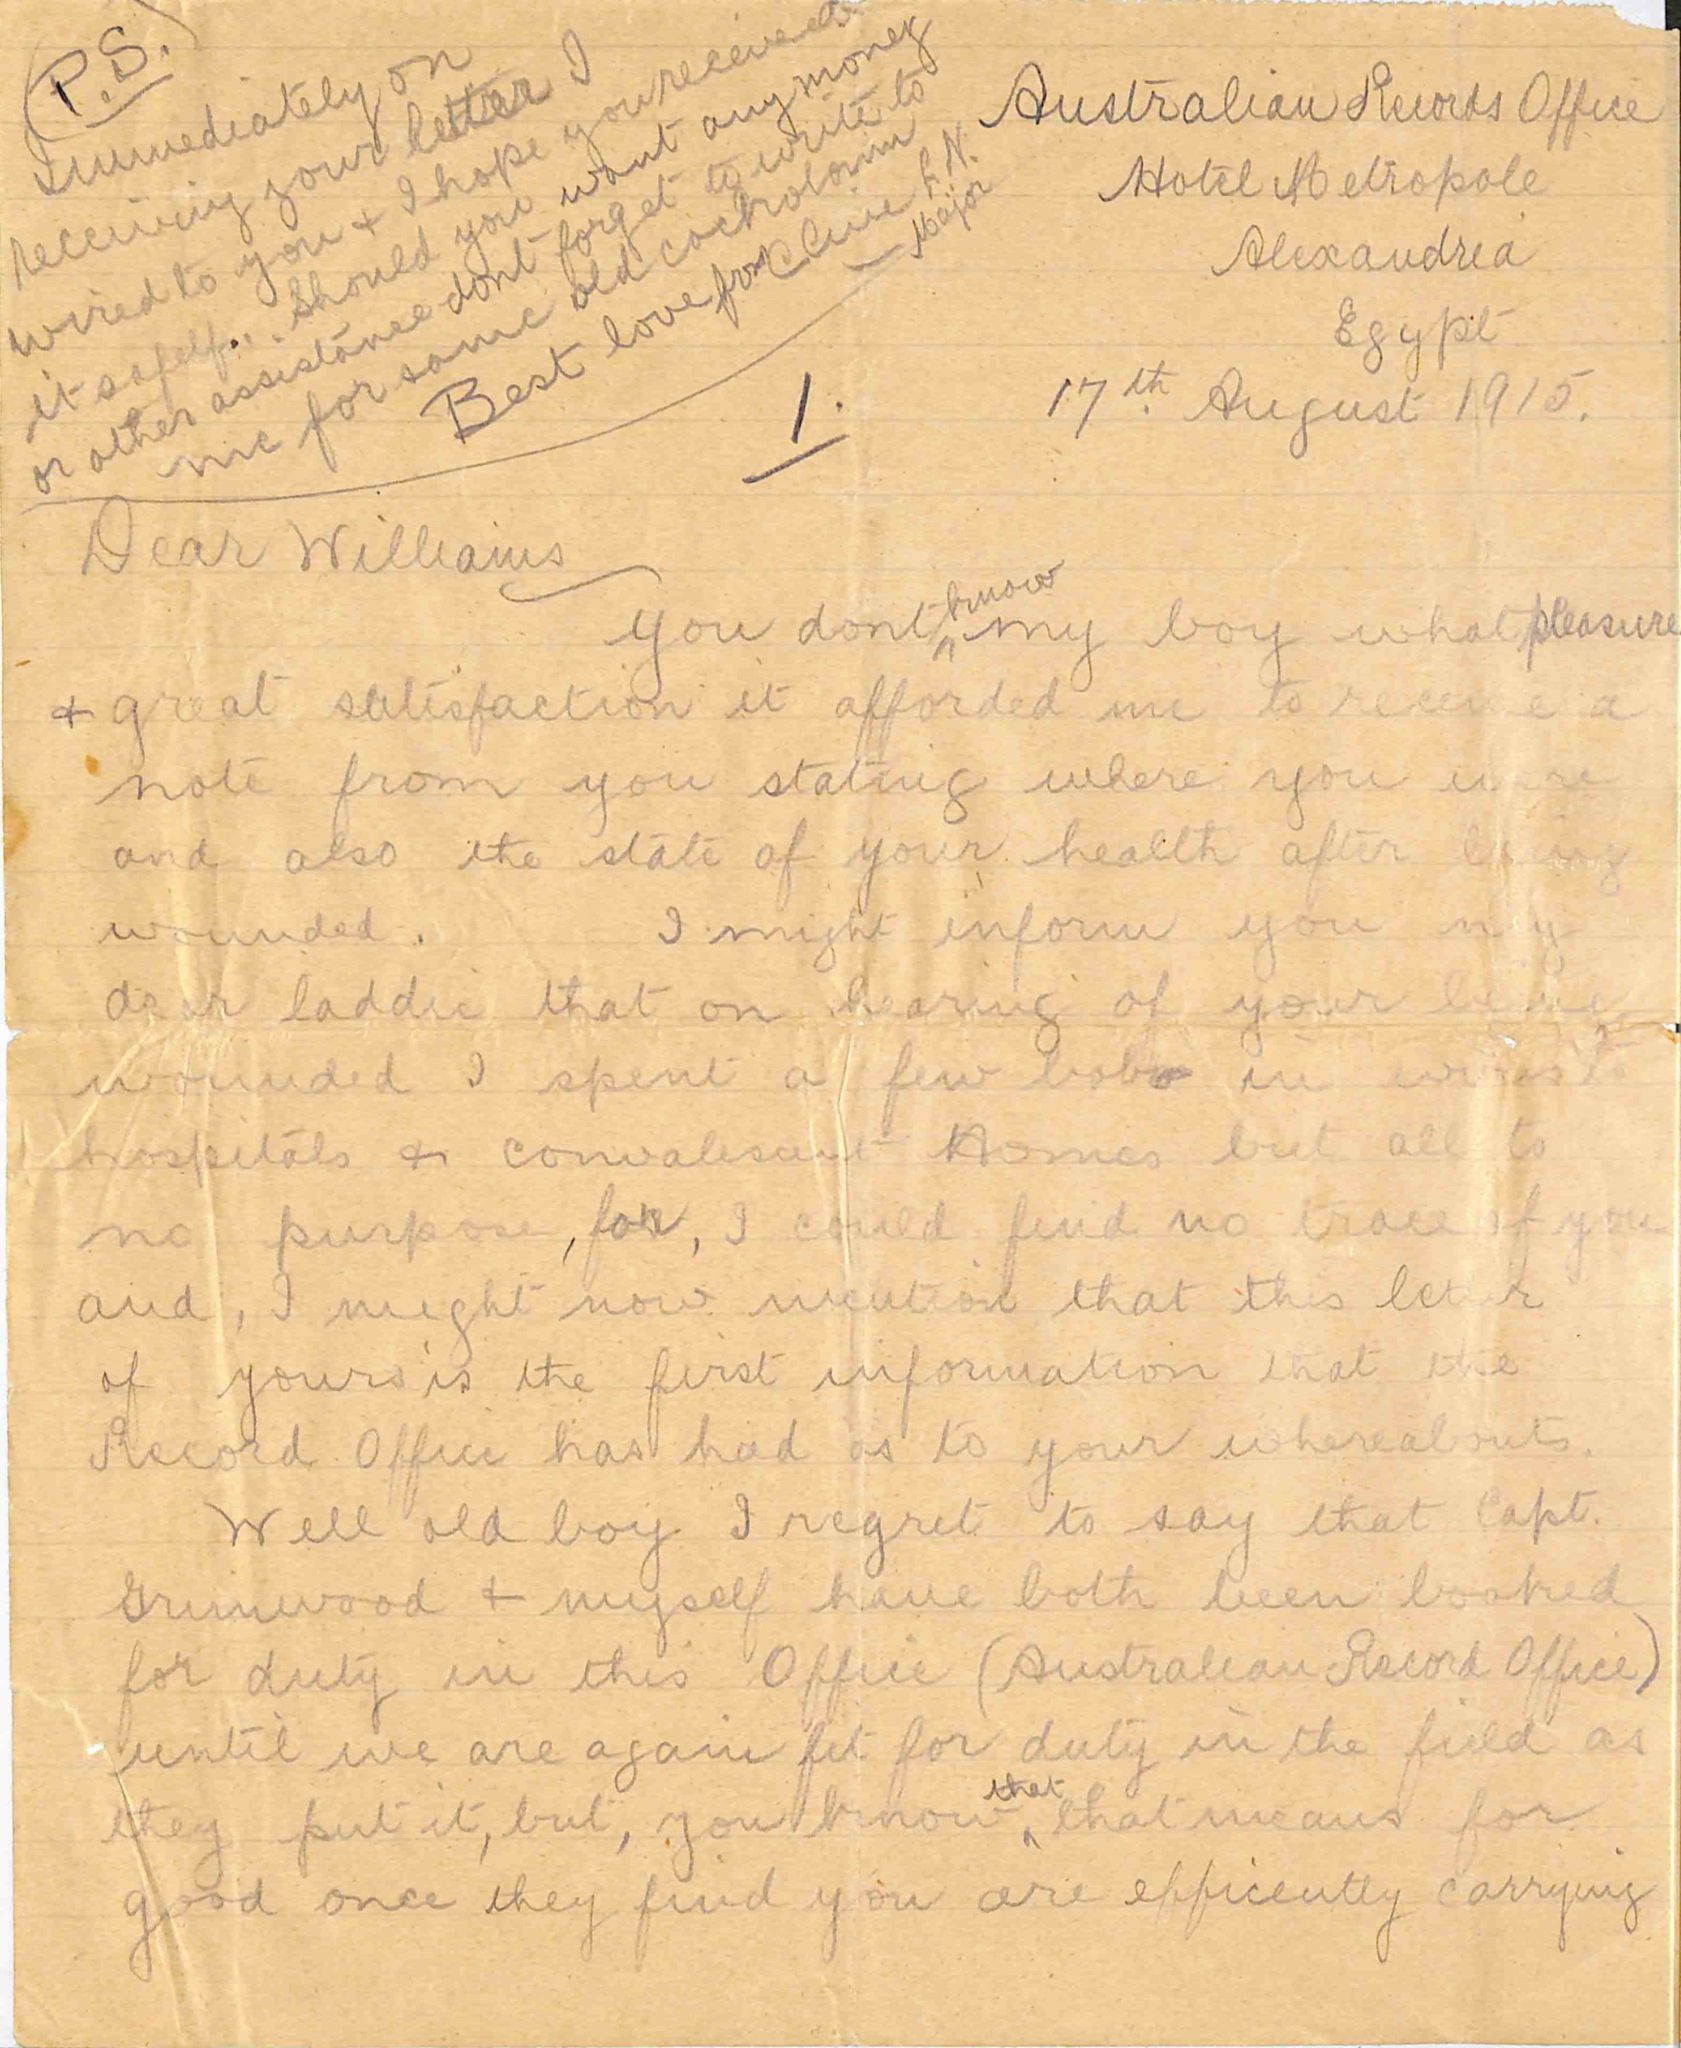 P.S.
Immediately on
receiving your letter I
wired to you & I hope you received
it safely. Should you want any money
or other assistance dont forget to write to
me for same old cockolorum
Best love from Clive L.N.
Major
Australian Records Office
Hotel Metropole
Alexandria
Egypt
17th August 1915.
1.
Dear Williams
You dont know my boy what pleasure
& great satisfaction it afforded me to receive a
note from you stating where you were
and also the state of your health after being
wounded. I might inform you my
dear laddie that on hearing of your being
wounded I spent a few bob in wires to
hospitals & convalescent Homes but all to
no purpose, for, I could find no trace of you
and, I might now mention that this letter
of yours is the first information that the
Record Office has had as to your whereabouts.
Well old boy I regret to say that Capt.
Grimwood & myself have both been booked
for duty in this Office (Australian Record Office)
until we are again fit for duty in the field as
they put it, but, you know that that means for
good once they find you are efficently carrying